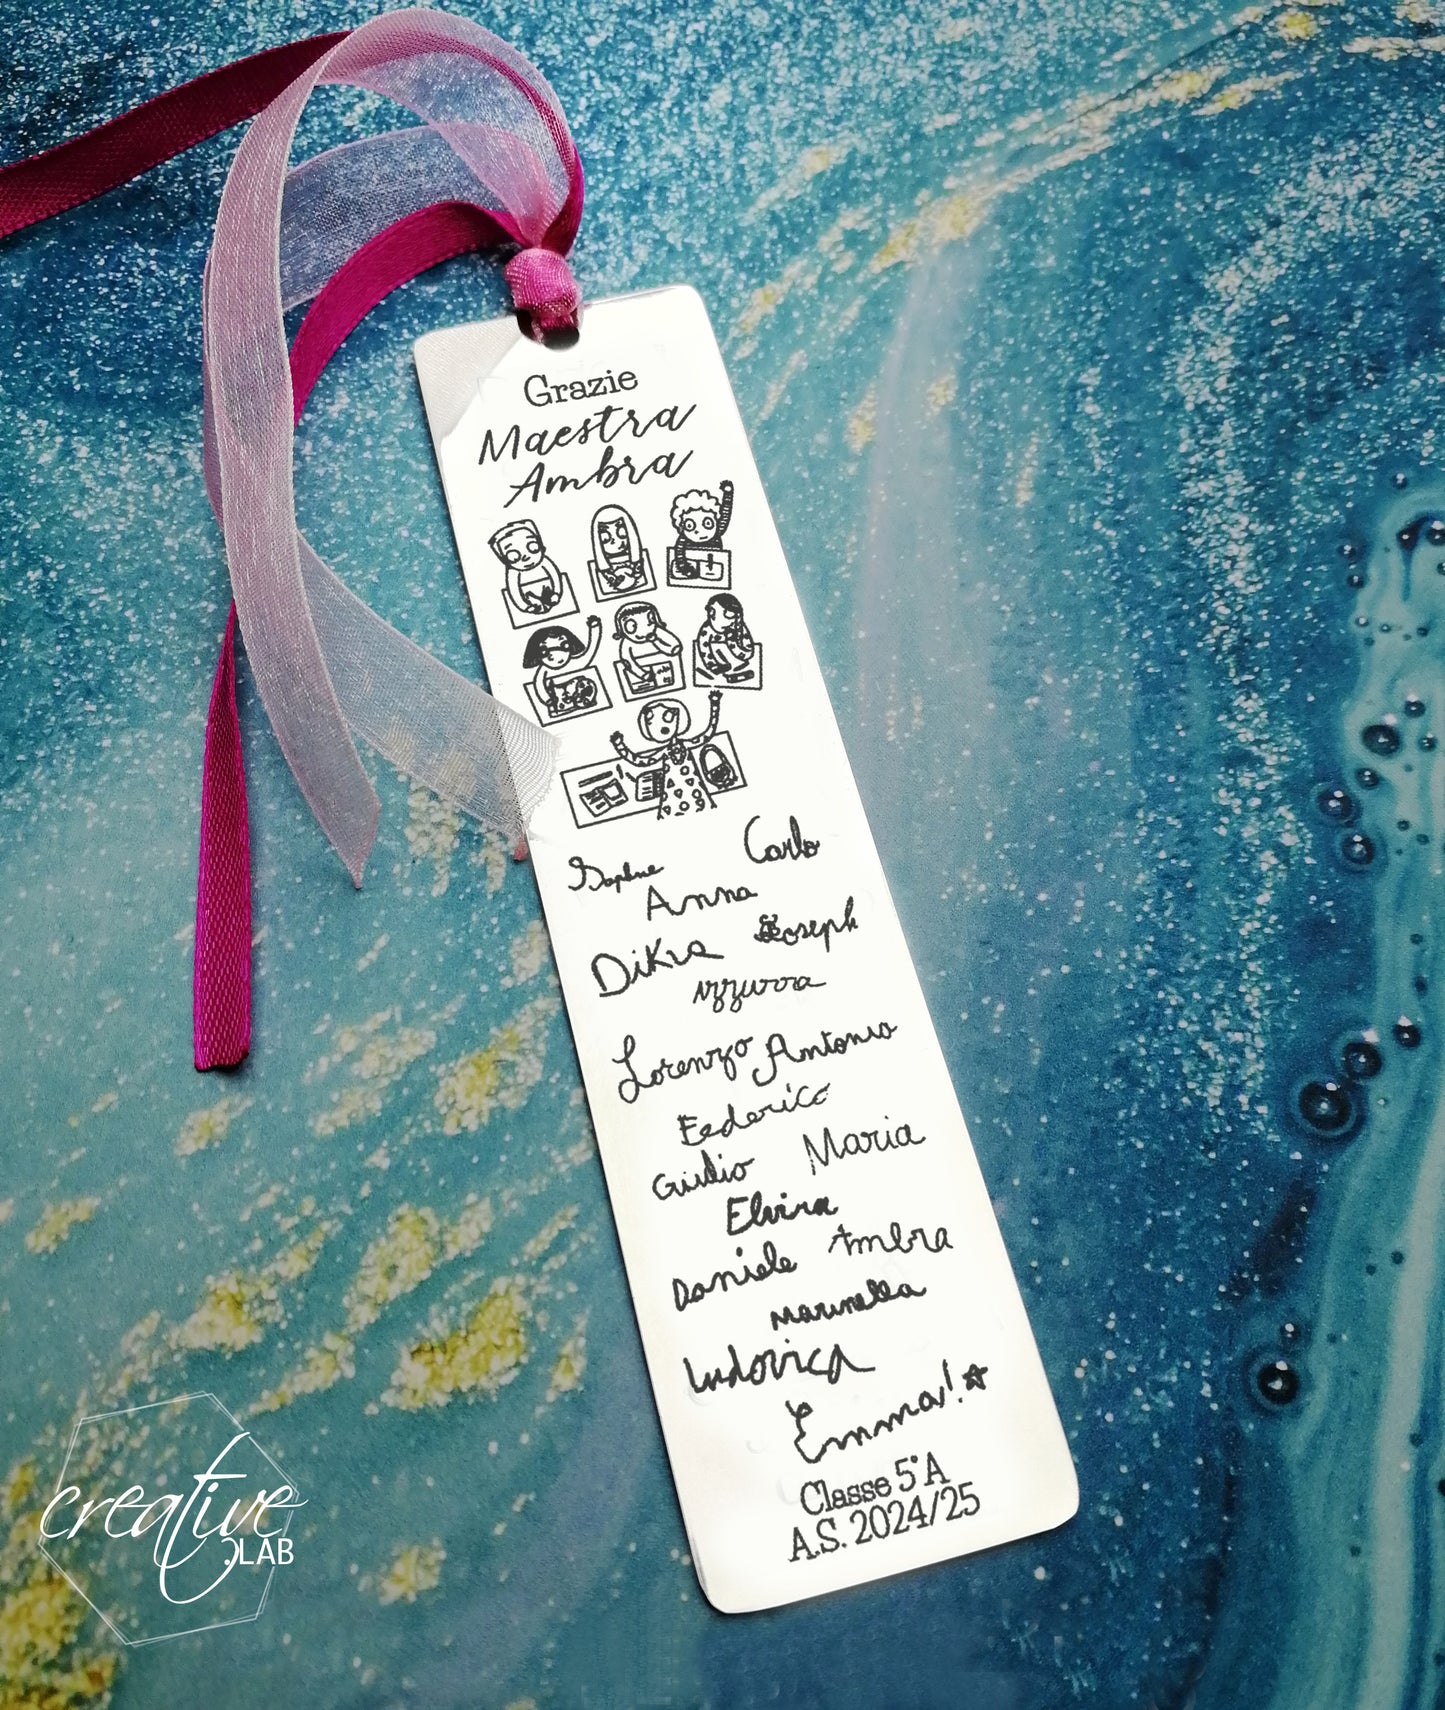 Grazie
Maestra
Ambra
Daphne Carlo
Anna
Dikra Joseph
Azzurra
Lorenzo Antonio
Federico
Giulio Maria
Elvira
Daniele Ambra
Marinella
Ludovica
Emma!
Classe 5°A
A.S. 2024/25
creative
.LAB